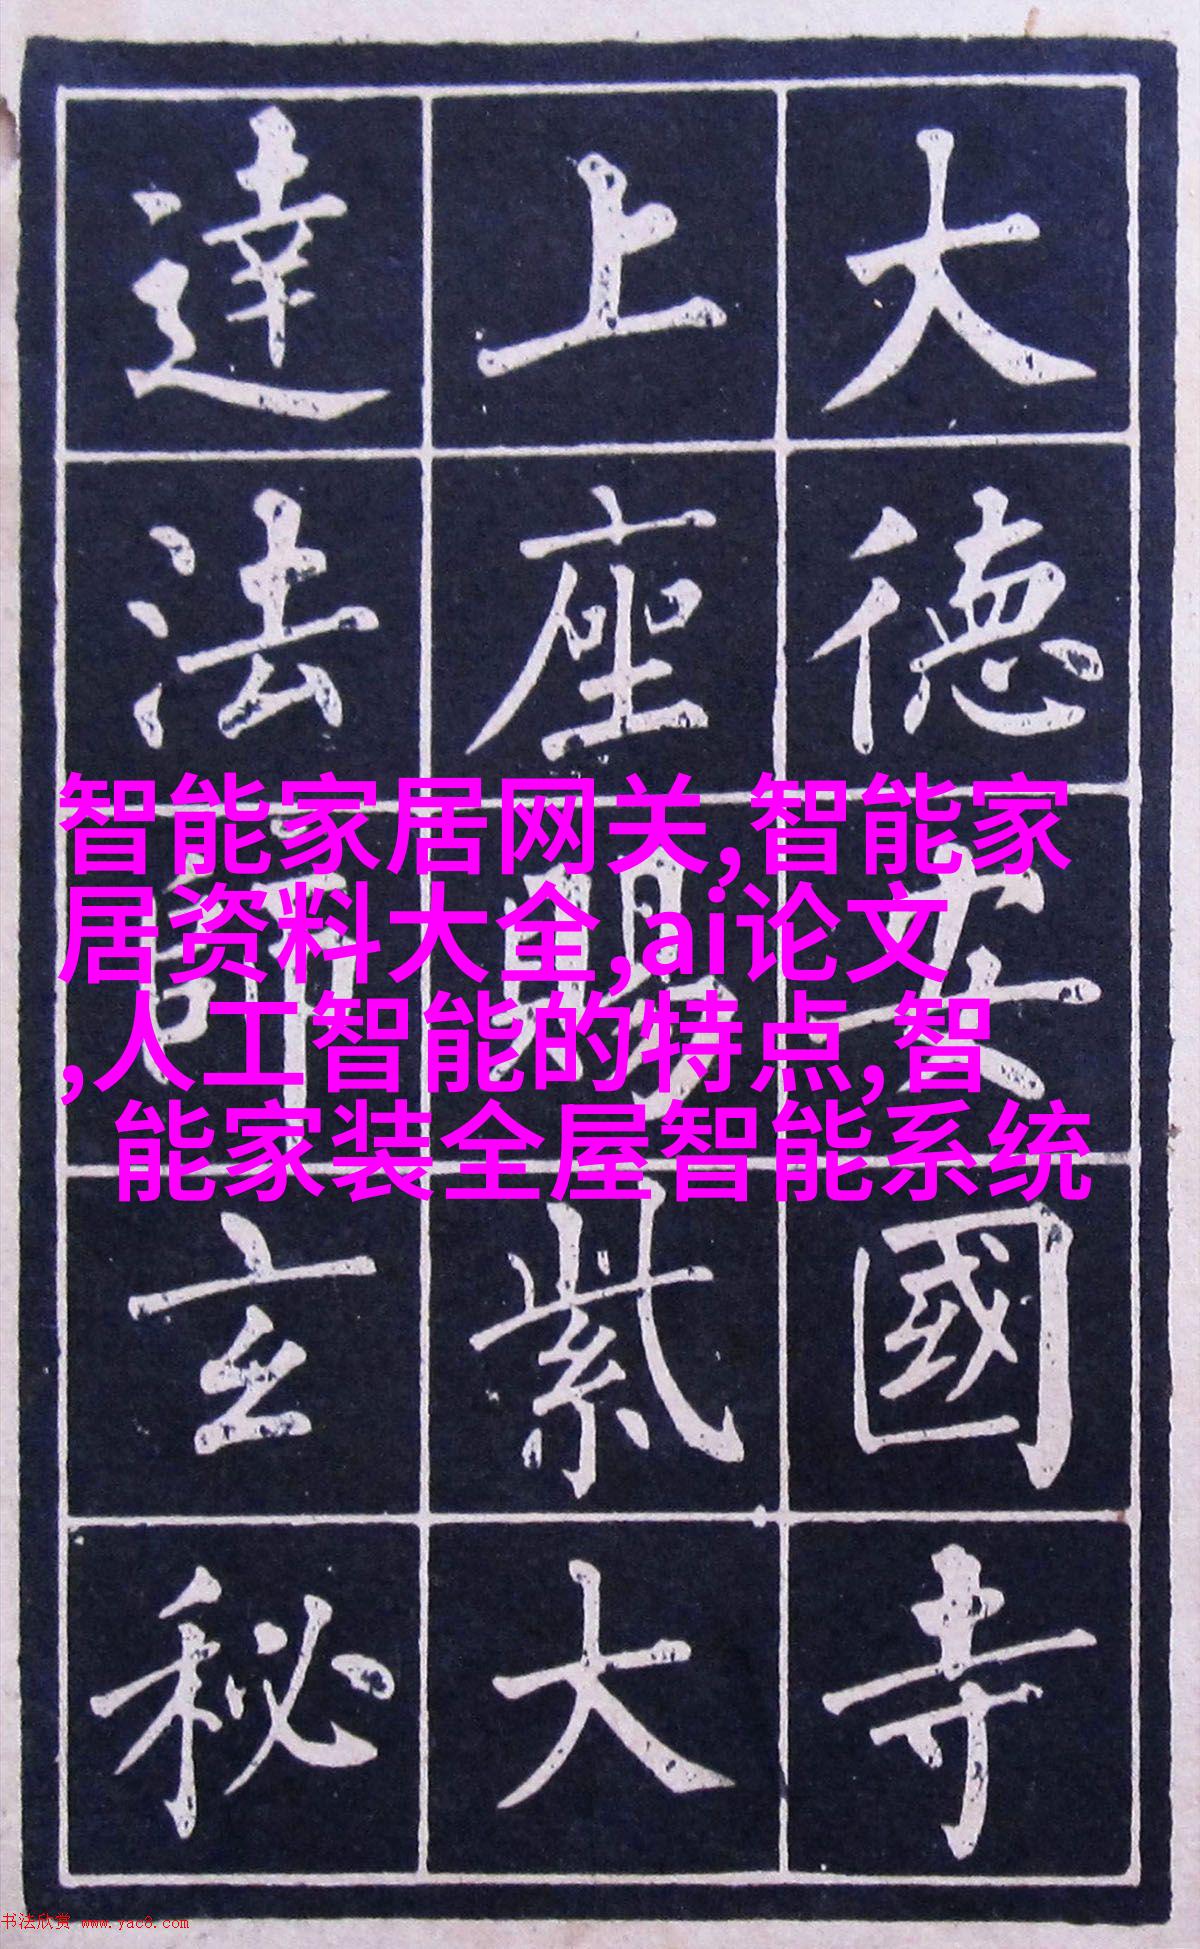 大德安國寺
上座賜紫大
達法師玄秘
智能家居网关,智能家
居资料大全,ai论文
,人工智能的特点,智
能家装全屋智能系统
书法欣赏 www.yac8.com